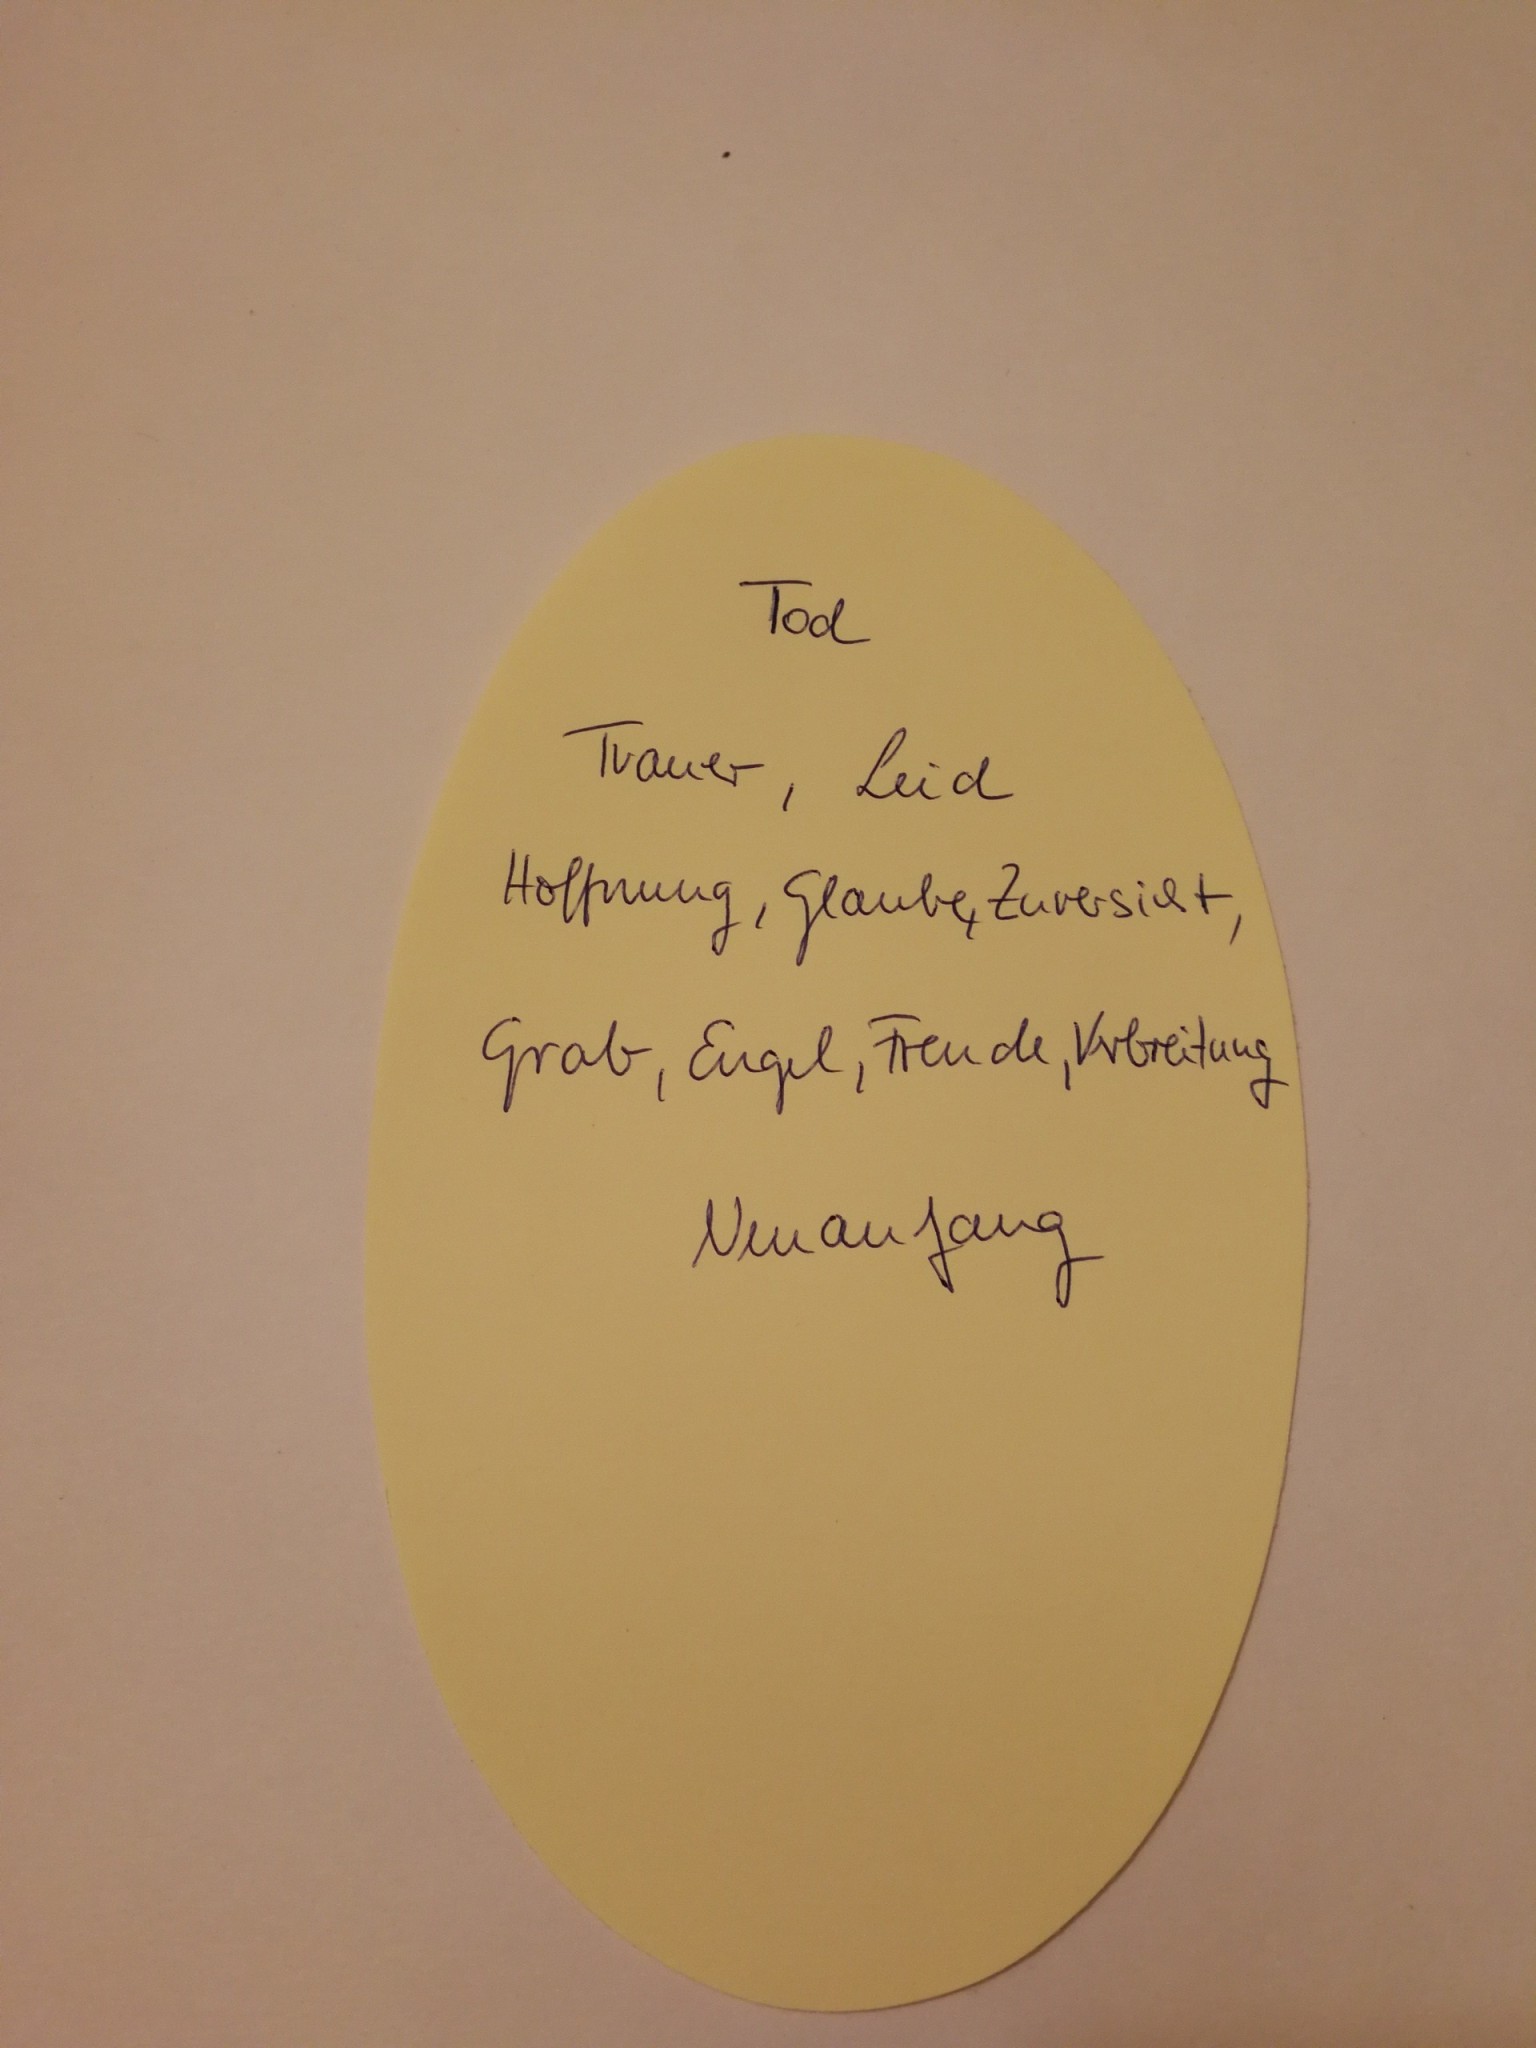 Tod
Trauer, Leid
Hoffnung, Glaube, Zuversicht,
Grab, Engel, Freude, Verbreitung
Neuanfang